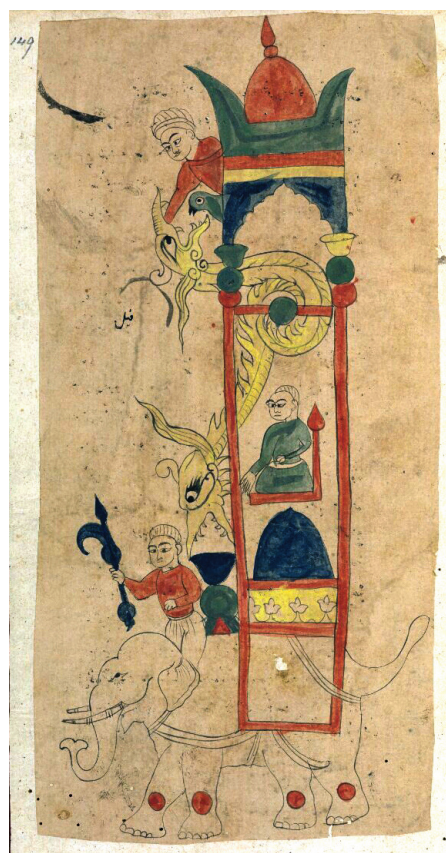 149
فيل